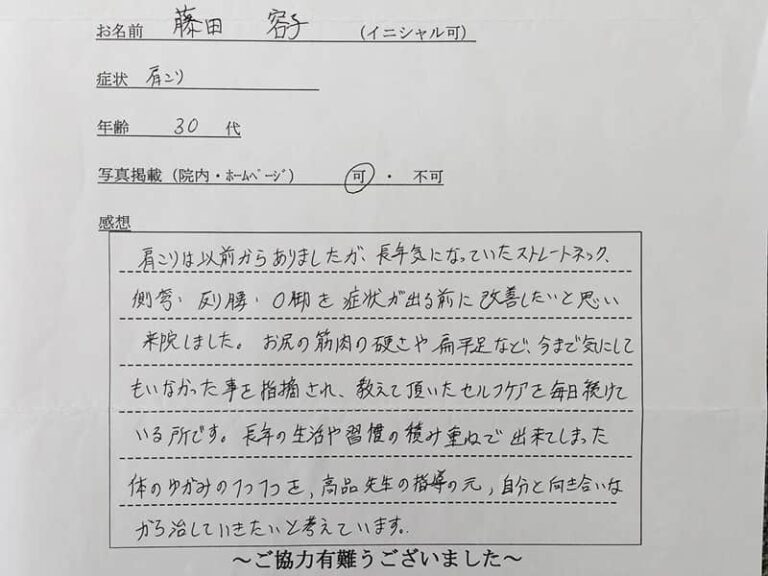 お名前 藤田 容子 (イニシャル可)
症状 肩こり
年齢 30 代
写真掲載(院内・ホームページ) 可 ・ 不可
感想
肩こりは以前からありましたが、長年気になっていたストレートネック、
側弯・反り腰・O脚を症状が出る前に改善したいと思い
来院しました。お尻の筋肉の硬さや扁平足など、今まで気にして
もいなかった事を指摘され、教えて頂いたセルフケアを毎日続けて
いる所です。長年の生活や習慣の積み重ねで出来てしまった
体のゆがみの1つ1つを、高品先生の指導の元、自分と向き合いな
がら治していきたいと考えています。
～ご協力有難うございました～